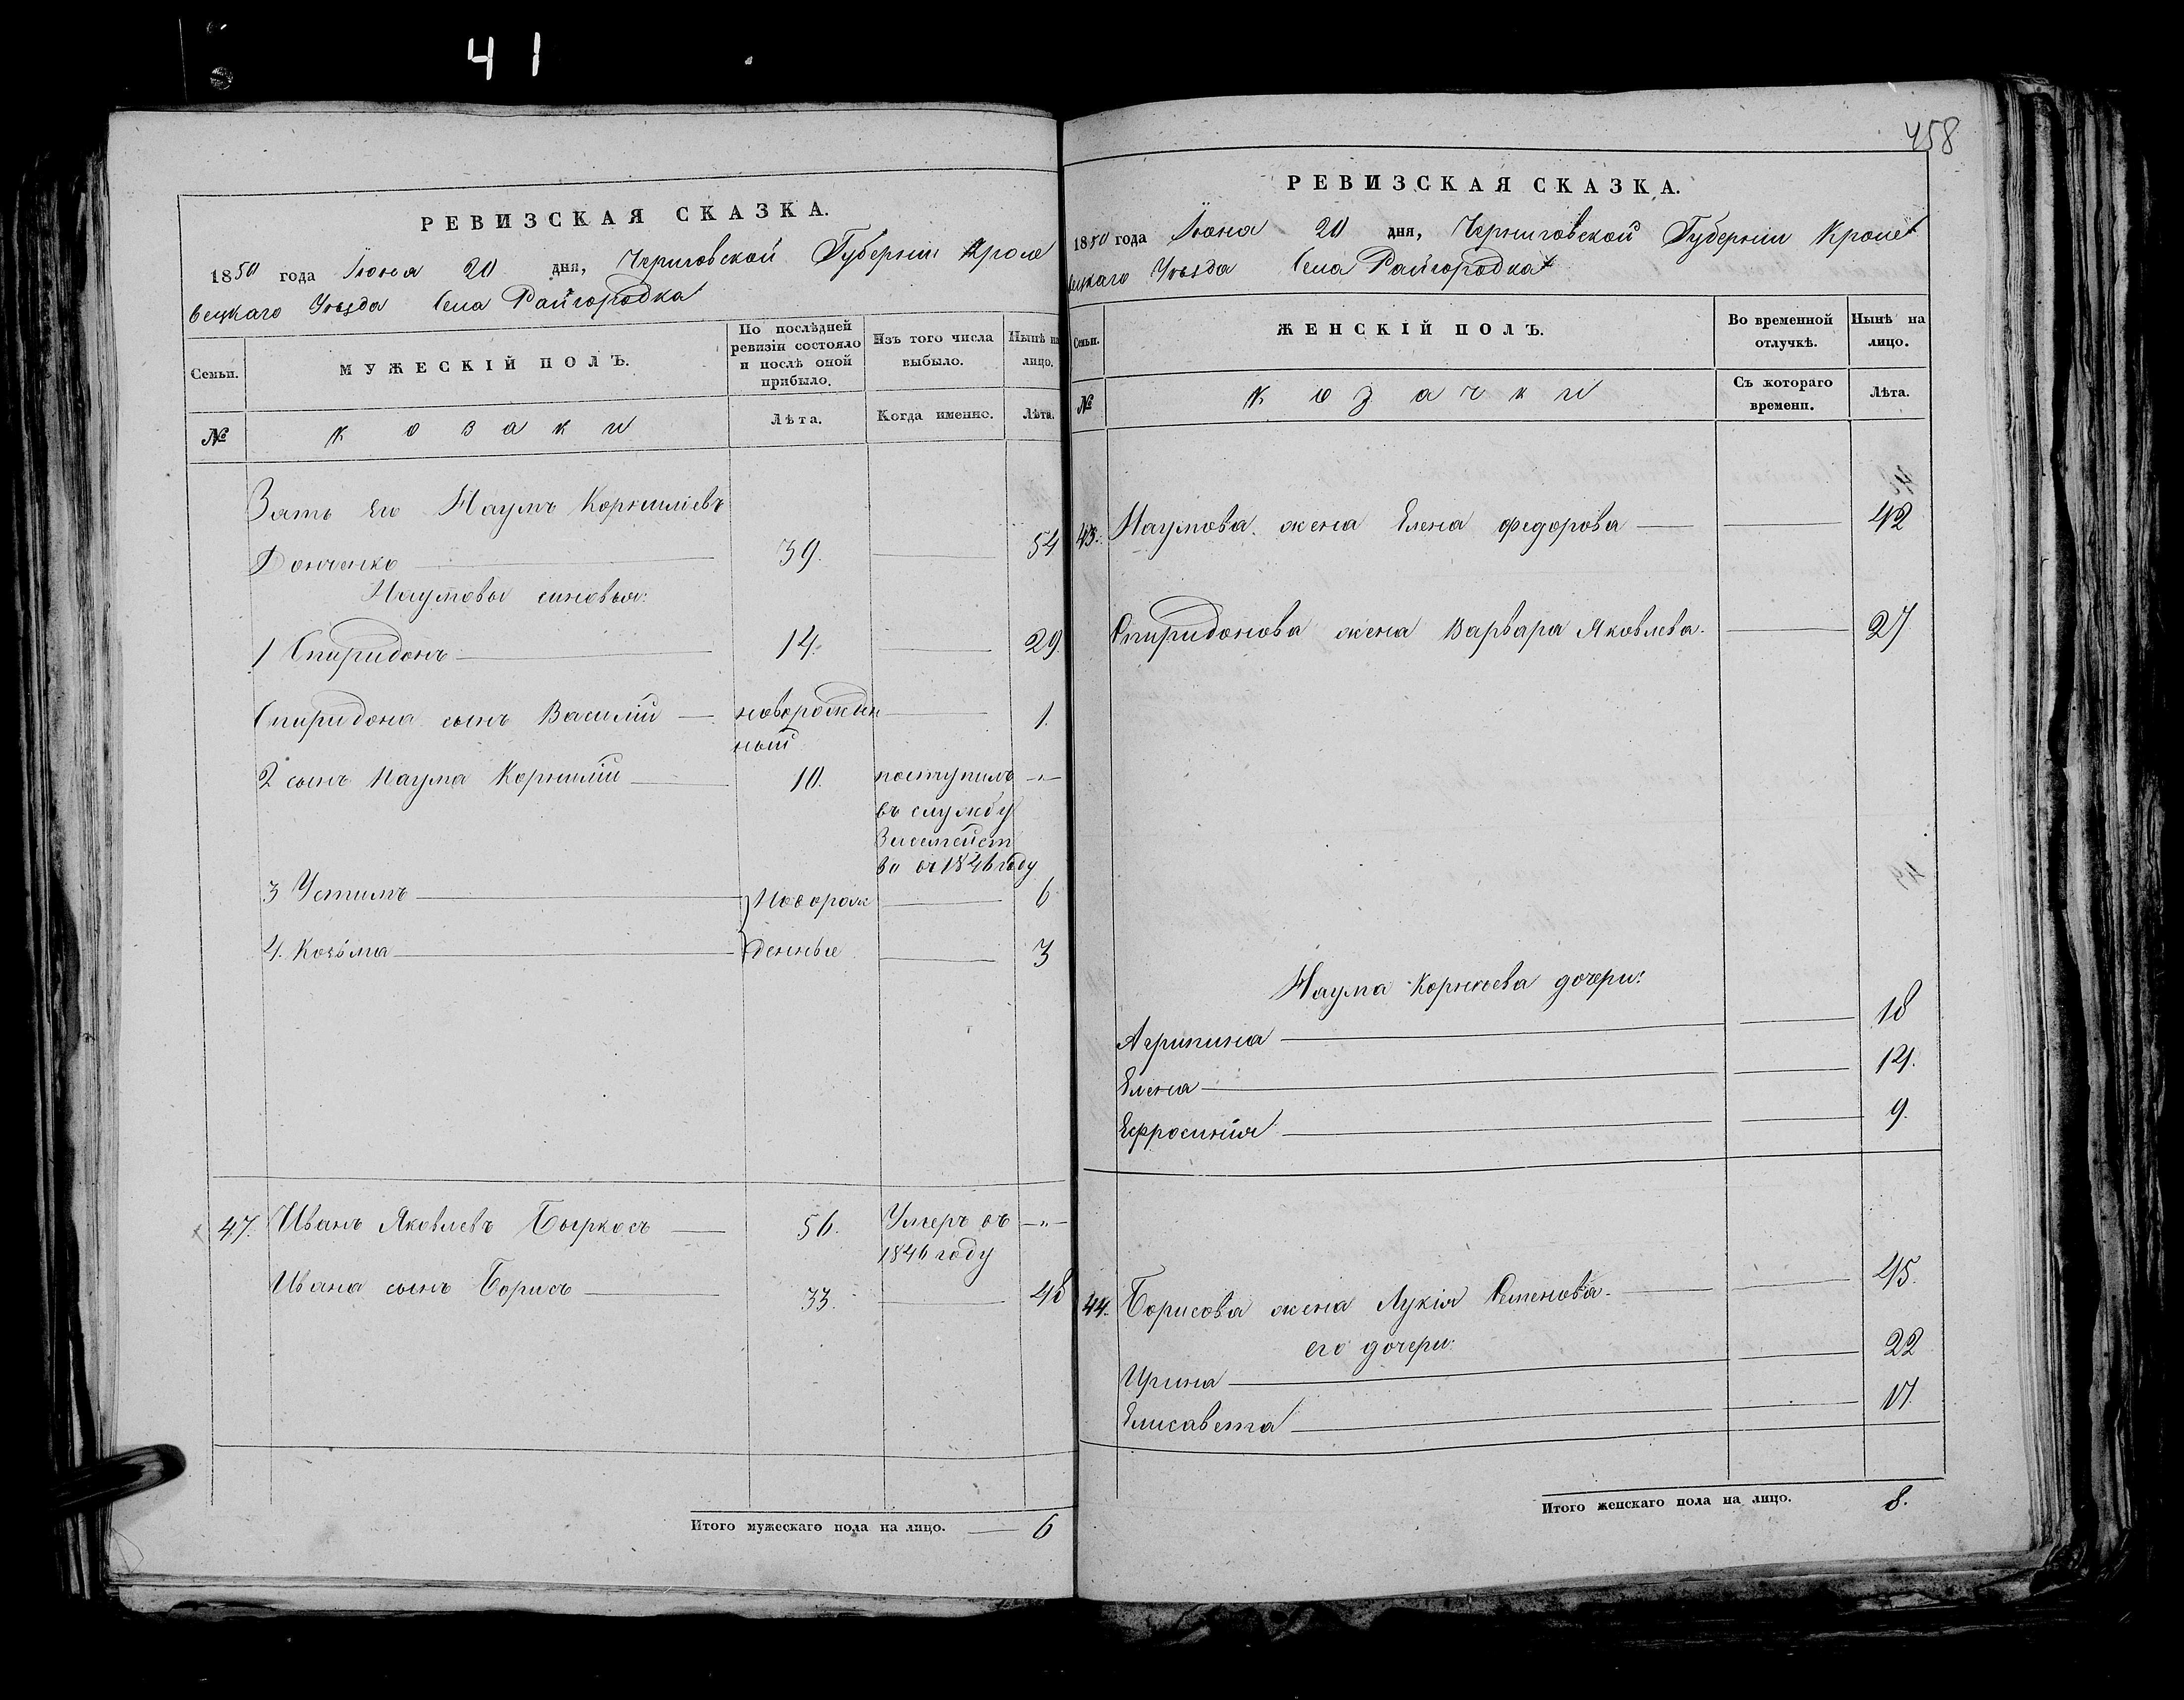 41
РЕВИЗСКАЯ СКАЗКА.
1850 года Июня 20 дня, Черниговской Губерніи Кроле
вецкаго Уѣзда Села Райгородка
Семьи.
МУЖЕСКІЙ ПОЛЪ.
По послѣдней
ревизіи состояло
и послѣ оной
прибыло.
Изъ того числа
выбыло.
Нынѣ на
лицо.
№
козаки
Лѣта.
Когда именно.
Лѣта.
Зять его Наумъ Корниліевъ
Донченко 39. 54
Наумовы синовья:
1 Спиридонъ 14. 29.
Спиридона сынъ Василій новорожден 1.
ный
2 сынъ Наума Корнилій 10. поступилъ -„-
въ службу
въ 1846 году
3 Устимъ Новорож 6
4. Козьма денные 3
47. Иванъ Яковлевъ Быркосъ 56. Умеръ въ -„-
1846 году
Ивана сынъ Борисъ 33. 48
Итого мужескаго пола на лицо. 6
458
РЕВИЗСКАЯ СКАЗКА.
1850 года Июня 20 дня, Черниговской Губерніи Кроле
вецкаго Уѣзда Села Райгородка
Семьи.
ЖЕНСКІЙ ПОЛЪ.
Во временной
отлучкѣ.
Нынѣ на
лицо.
№
козачки
Съ котораго
времени.
Лѣта.
43. Наумова жена Елена Федорова 42
Спиридонова жена Варвара Яковлева. 27
Наума Корнеева дочери:
Агрипина 18
Елена 14.
Ефросинія 9.
44. Борисова жена Лукія Семенова. 45.
его дочери:
Ирина 22
Елисавета 17.
Итого женскаго пола на лицо. 8.